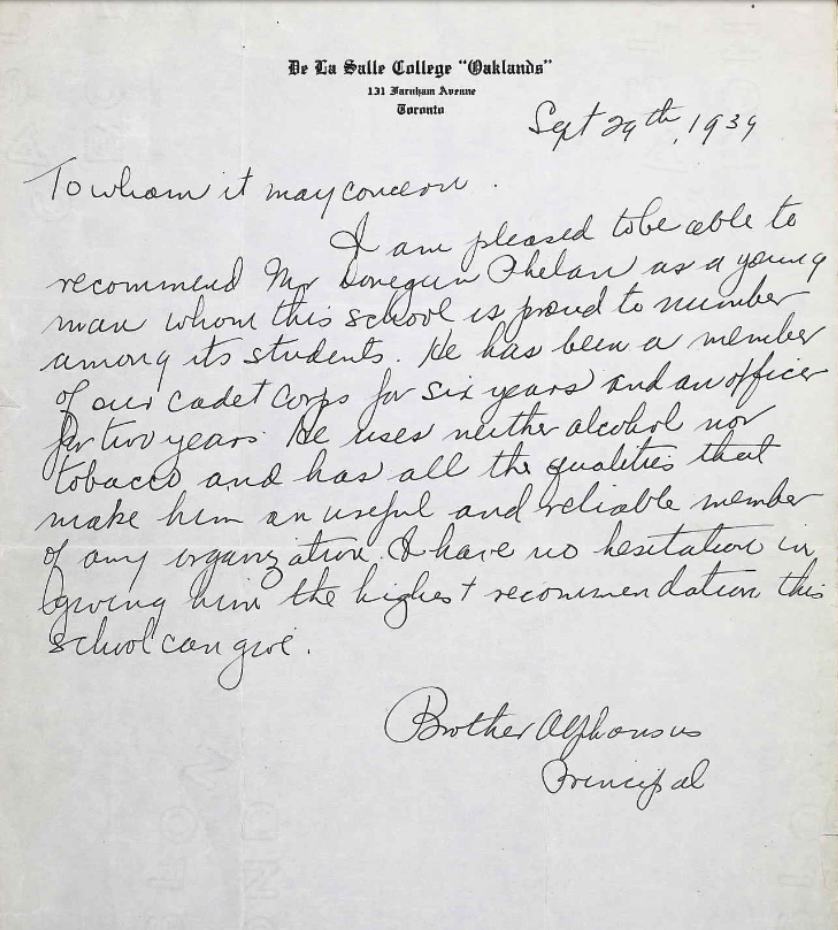 De La Salle College "Oaklands"
131 Farnham Avenue
Toronto
Sept 29th, 1939
To whom it may concern.
I am pleased to be able to
recommend Mr Donegan Phelan as a young
man whom this school is proud to number
among its students. He has been a member
of our cadet corps for six years and an officer
for two years. He uses neither alcohol nor
tobacco and has all the qualities that
make him an useful and reliable member
of any organization. I have no hesitation in
giving him the highest recommendation this
school can give.
Brother Alphonsus
Principal